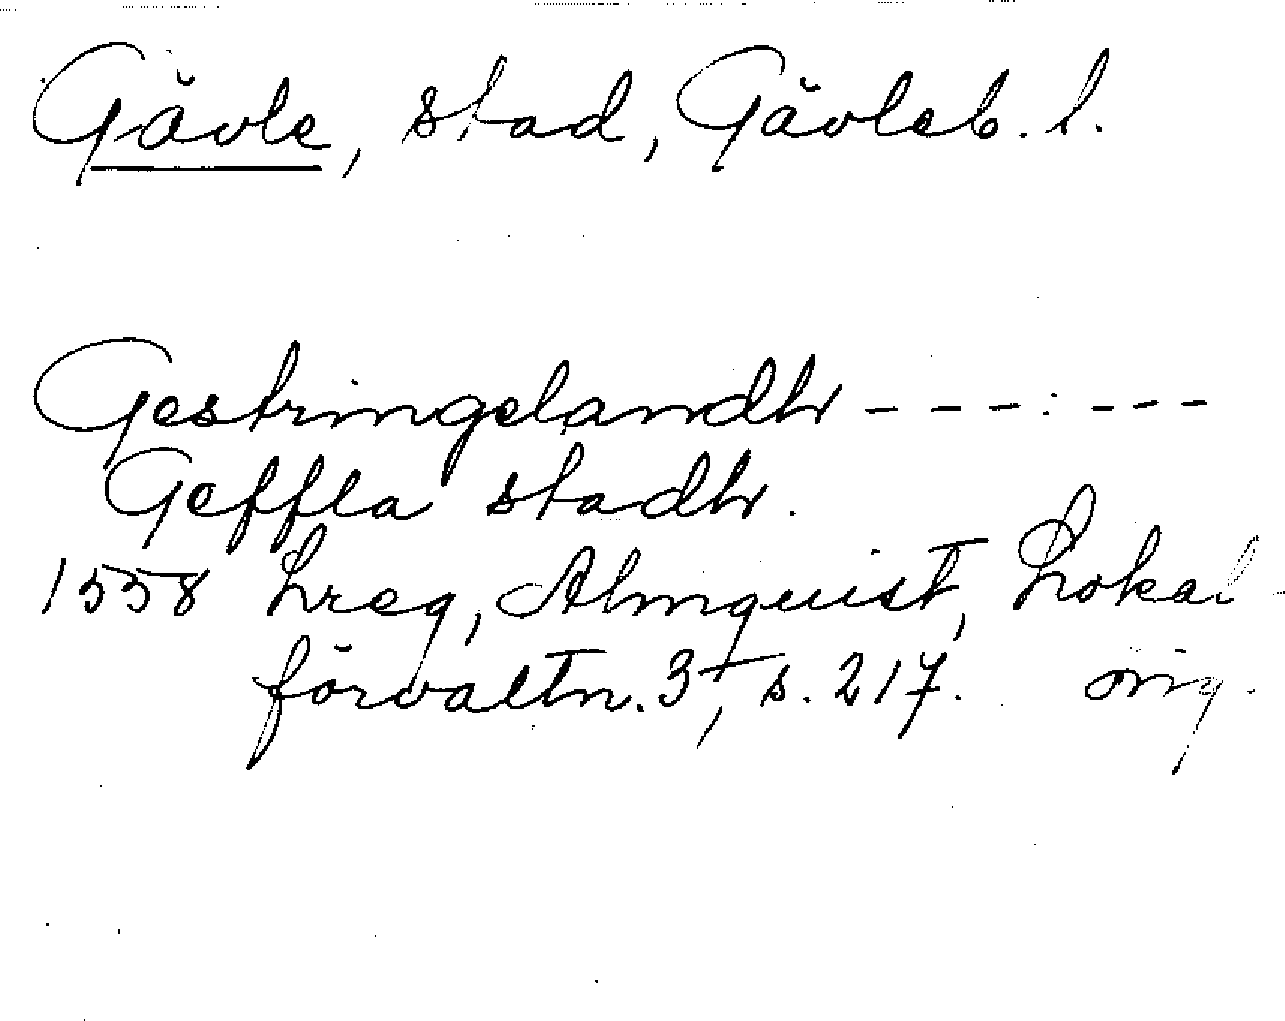 Gävle, stad, Gävleb. l.
Gestringelandh - - - : - - -
Geffla stadh.
1558 Lreg, Almquist, Lokal-
förvaltn. 3, s. 217. orig.